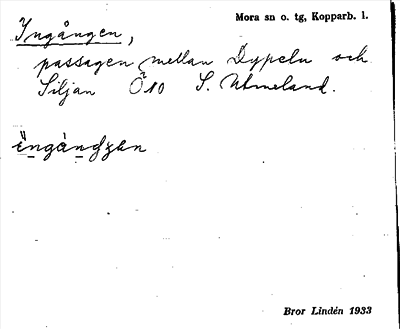 Mora sn o. tg, Kopparb. l.
Ingången,
passagen mellan Dypeln och
Siljan Ö10 S. Utmeland.
Bror Lindén 1933